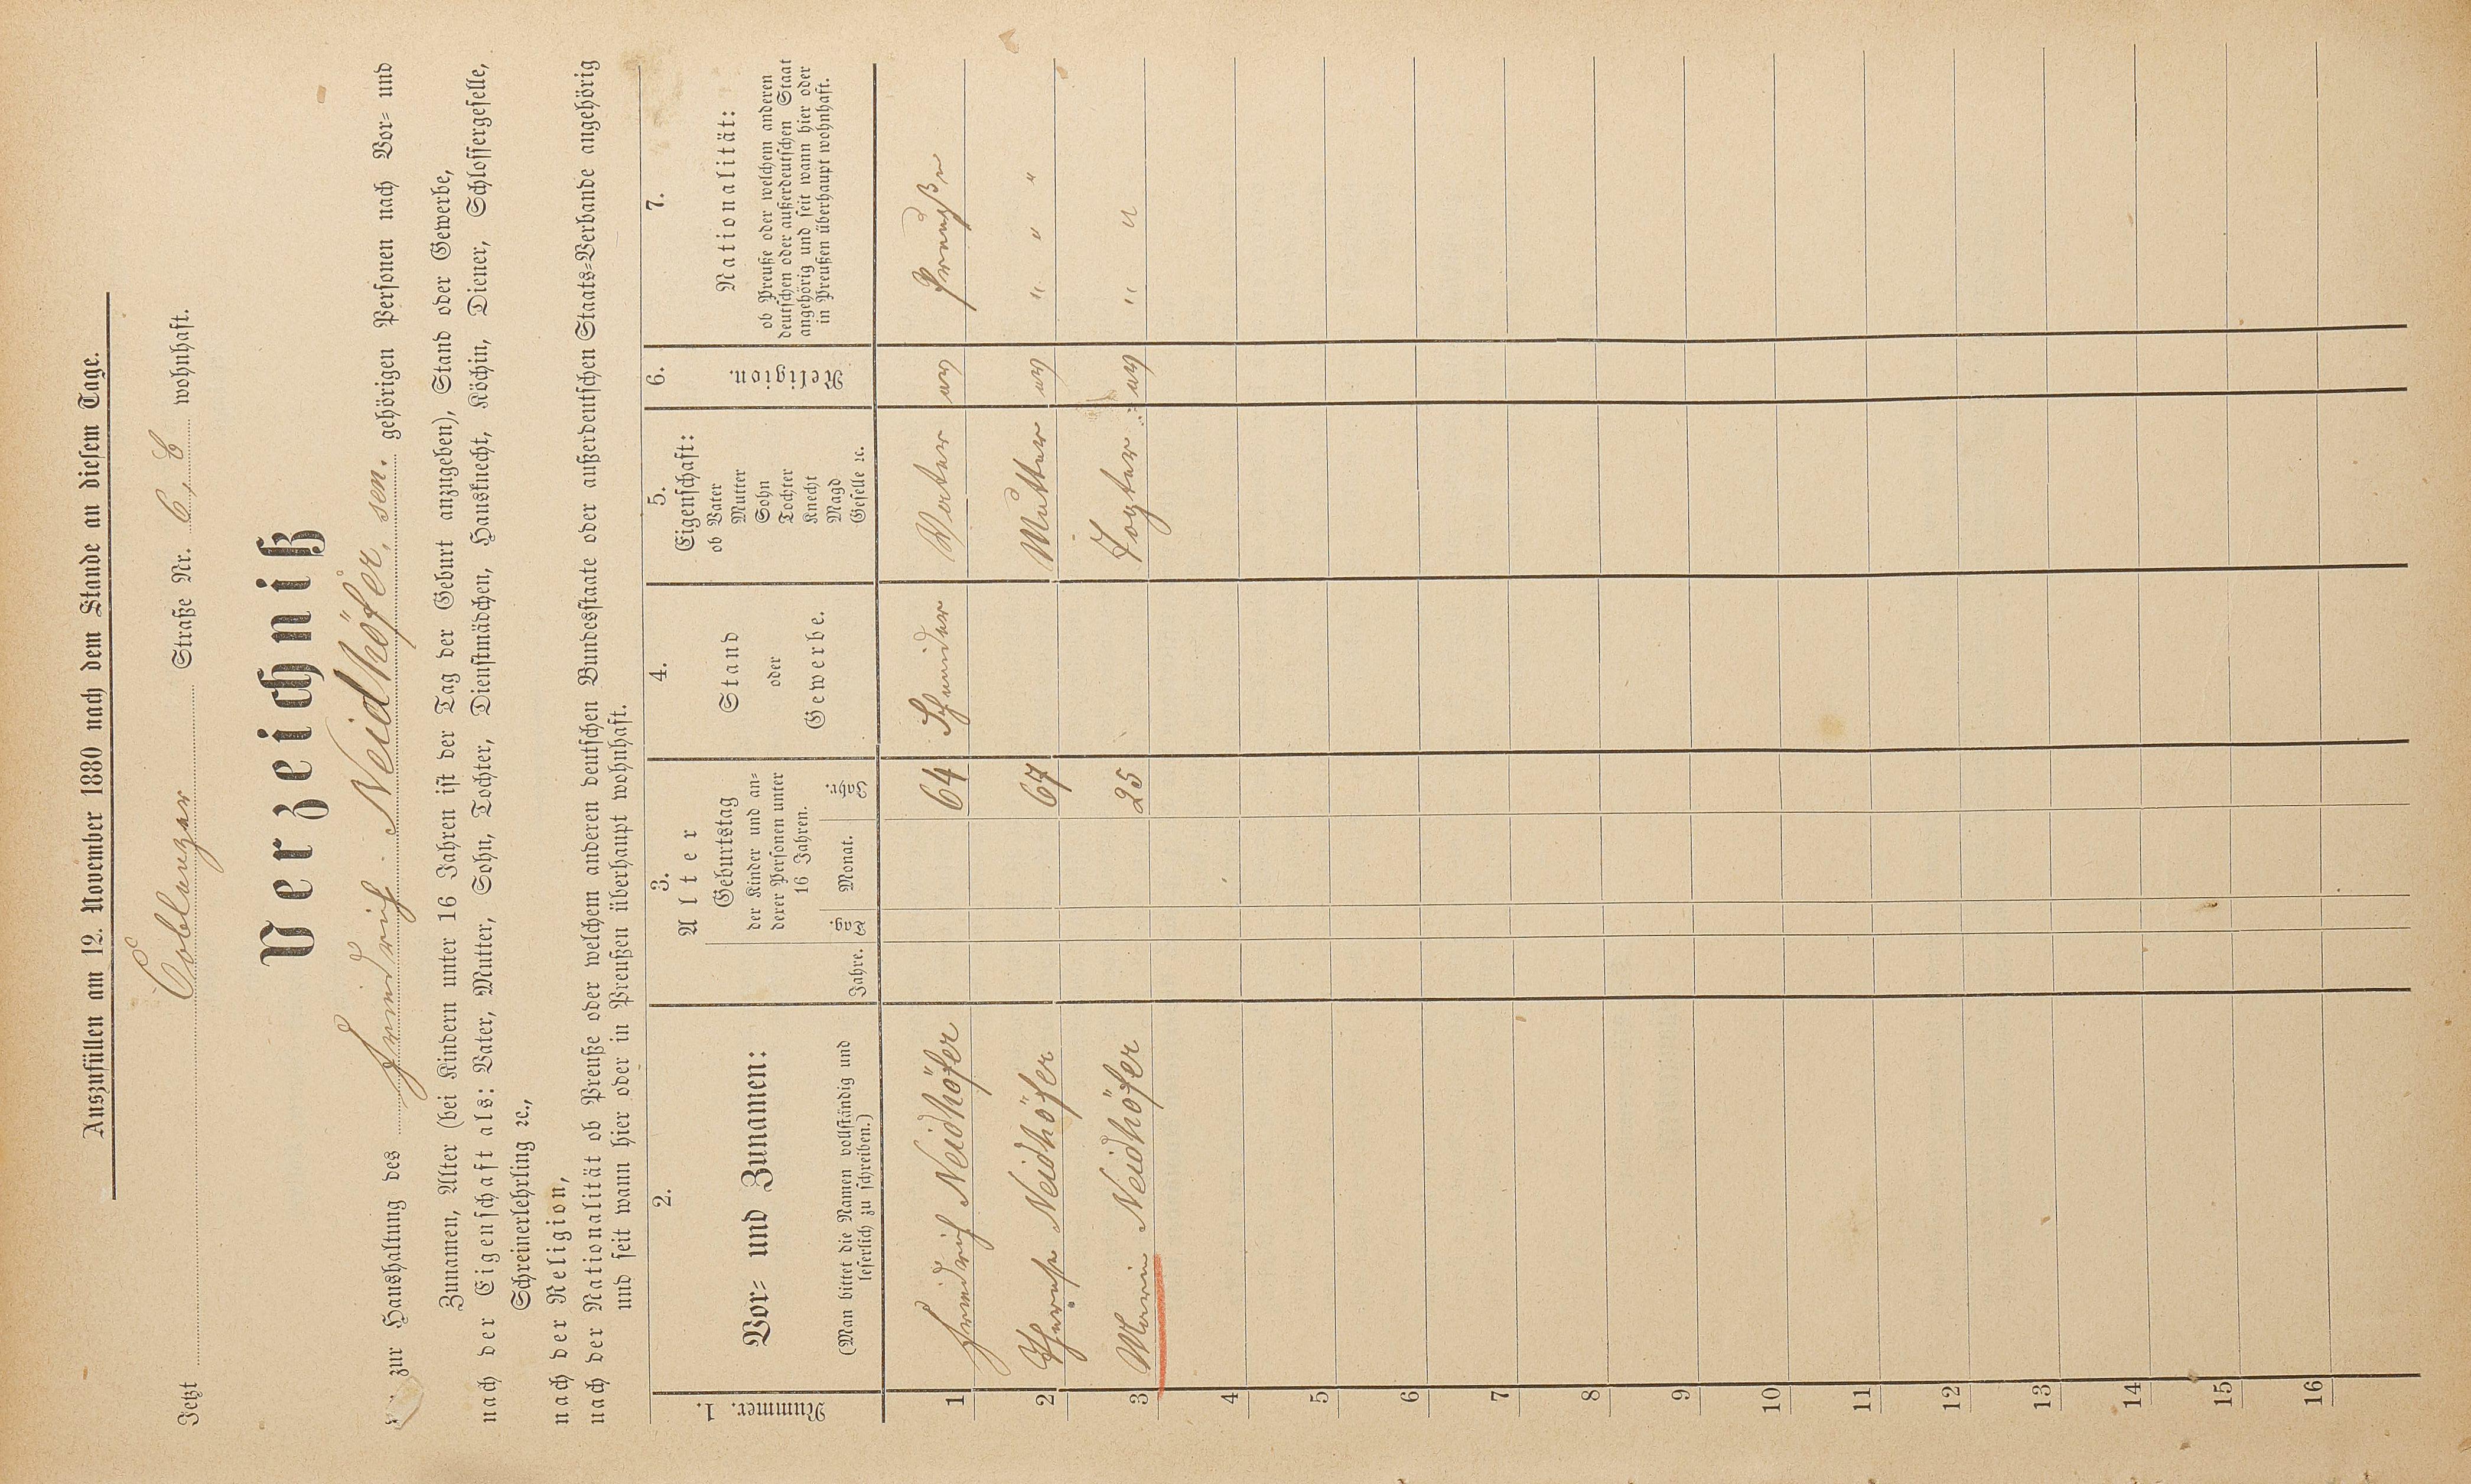 Auszufüllen am 12. November 1880 nach dem Stande an diesem Tage.
Jetzt Coblenzer Straße Nr. 6, E wohnhaft.
Verzeichniß
der zur Haushaltung des Friedrich Neidhöfer, sen. gehörigen Personen nach Vor= und
Zunamen, Alter (bei Kindern unter 16 Jahren ist der Tag der Geburt anzugeben), Stand oder Gewerbe,
nach der Eigenschaft als: Vater, Mutter, Sohn, Tochter, Dienstmädchen, Hausknecht, Köchin, Diener, Schlossergeselle,
Schreinerlehrling ꝛc.,
nach der Religion,
nach der Nationalität ob Preuße oder welchem anderen deutschen Bundesstaate oder außerdeutschen Staats=Verbande angehörig
und seit wann hier oder in Preußen überhaupt wohnhaft.
1. Nummer.
2.
Vor= und Zunamen:
(Man bittet die Namen vollständig und
leserlich zu schreiben.)
3.
Alter
Jahre.
Geburtstag
der Kinder und an=
derer Personen unter
16 Jahren.
Tag
Monat.
Jahr.
4.
Stand
oder
Gewerbe.
5.
Eigenschaft:
ob Vater
Mutter
Sohn
Tochter
Knecht
Magd
Geselle ꝛc.
6.
Religion.
7.
Nationalität:
ob Preuße oder welchem anderen
deutschen oder außerdeutschen Staat
angehörig und seit wann hier oder
in Preußen überhaupt wohnhaft.
1 Friedrich Neidhöfer 64 Schneider Vater ev Preuße
2 Therese Neidhöfer 67 Mutter ev " " "
3 Marie Neidhöfer 25 Togter ev " "
4
5
6
7
8
9
10
11
12
13
14
15
16